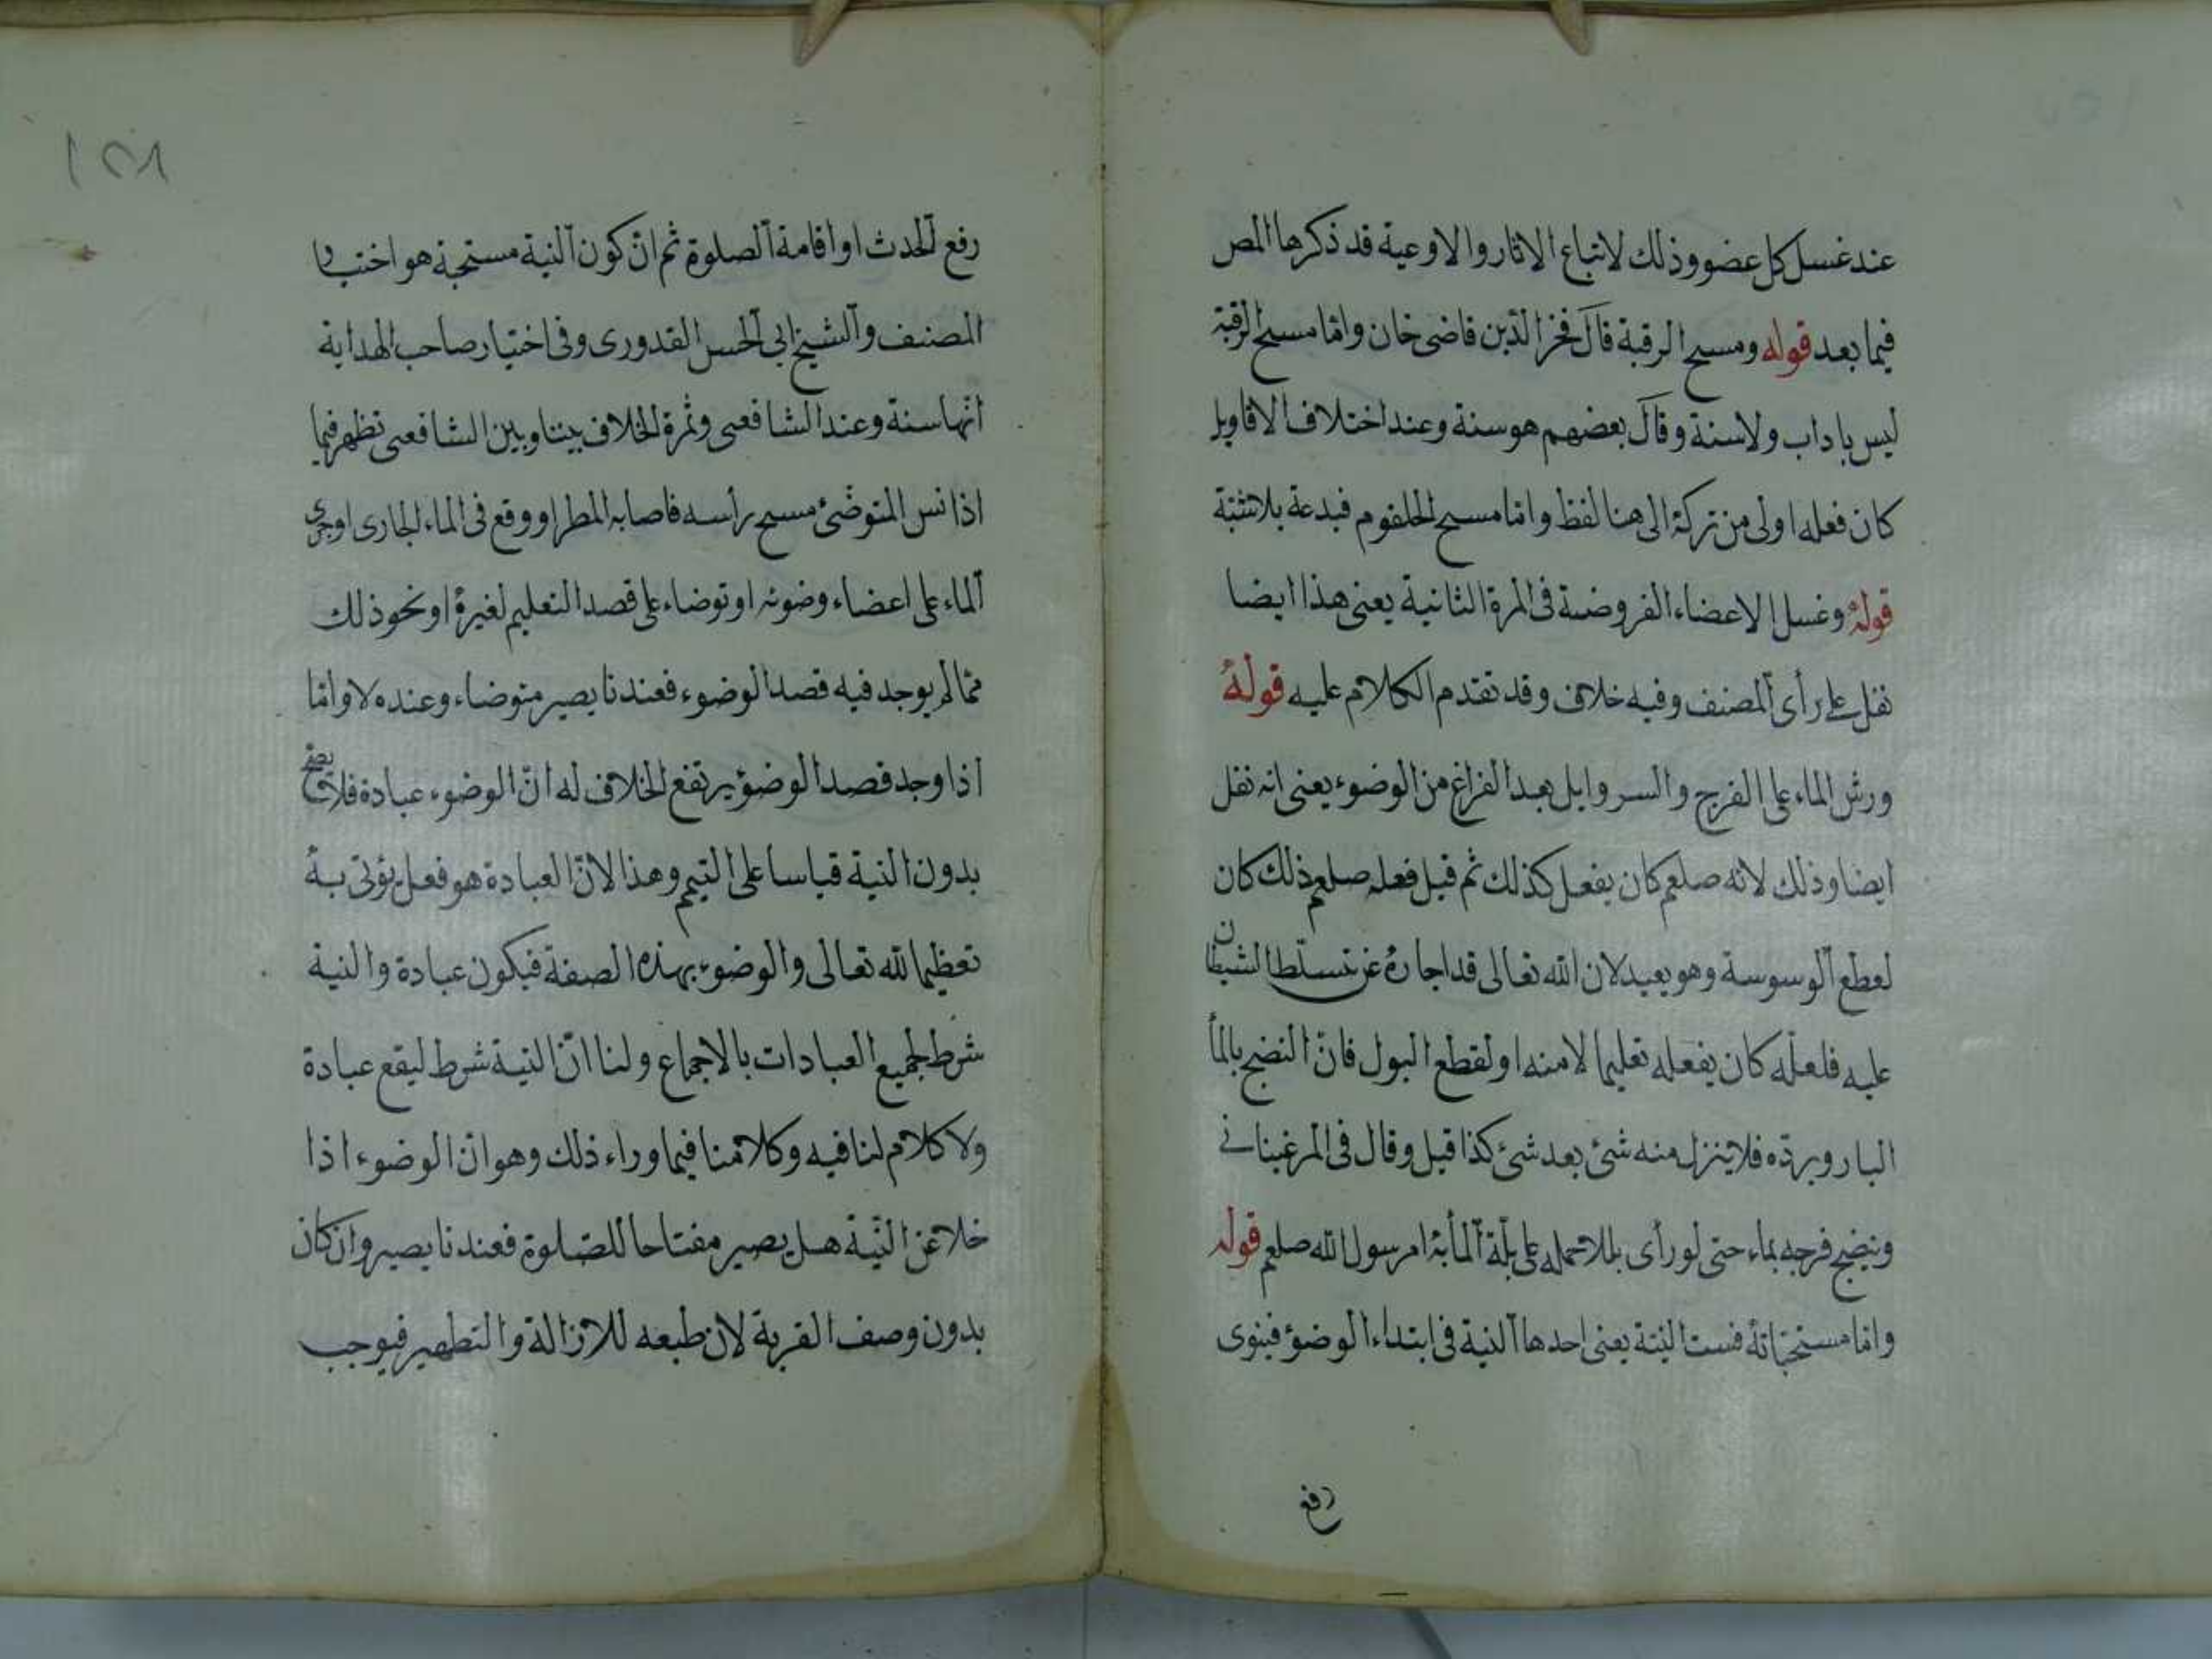 عند غسل كل عضو وذلك لاتباع الاثار والاوعية قد ذكرها المص
فيما بعد قوله ومسح الرقبة قال فخر الدين قاضى خان واما مسح الرقبة
ليس باداب ولا سنة وقال بعضهم هو سنة وعند اختلاف الاقاويل
كان فعله اولى من تركه الى هنا لفظ واما مسح الحلقوم فبدعة بلا شبهة
قوله وغسل الاعضاء المفروضة فى المرة الثانية يعنى هذا ايضا
نفل على رأى المصنف وفيه خلاف وقد تقدم الكلام عليه قوله
ورش الماء على الفرج والسروايل بعد الفراغ من الوضوء يعنى انه نفل
ايضا وذلك لانه صلعم كان يفعل كذلك ثم قيل فعله صلعم ذلك كان
لقطع الوسوسة وهو بعيد لان الله تعالى قد اجاره عن تسلط الشيطان
عليه فلعله كان يفعله تعليما لامته او لقطع البول فان النضح بالماء
البارد يرده فلا ينزل منه شئ بعد شئ كذا قيل وقال فى المرغينانى
وينضح فرجه بماء حتى لو رأى بللا حمله على بلة الماء به امر رسول الله صلعم قوله
واما مستحباته فست النية يعنى احدها النية فى ابتداء الوضوء فينوى
رفع
١٥٨
رفع الحدث او اقامة الصلوة ثم ان كون النية مستحبة هو اختيار
المصنف والشيخ ابى الحسن القدورى وفى اختيار صاحب الهداية
انها سنة وعند الشافعى وثمرة الخلاف بيننا وبين الشافعى تظهر فيما
اذا نسى المتوضئ مسح رأسه فاصابه المطر او وقع فى الماء الجارى او جرى
الماء على اعضاء وضوئه او توضاء على قصد التعليم لغيره او نحو ذلك
مما لم يوجد فيه قصد الوضوء فعندنا يصير متوضاء وعنده لا واما
اذا وجد قصد الوضوء يرتفع الخلاف له ان الوضوء عبادة فلا يصح
بدون النية قياسا على التيمم وهذا لان العبادة هو فعل يؤتى به
تعظيما لله تعالى والوضوء بهذه الصفة فيكون عبادة والنية
شرط لجميع العبادات بالاجماع ولنا ان النية شرط ليقع عبادة
ولا كلام لنا فيه وكلامنا فيما وراء ذلك وهو ان الوضوء اذا
خلا عن النية هل يصير مفتاحا للصلوة فعندنا يصير وان كان
بدون وصف القربة لان طبعه للازالة والتطهير فيوجب